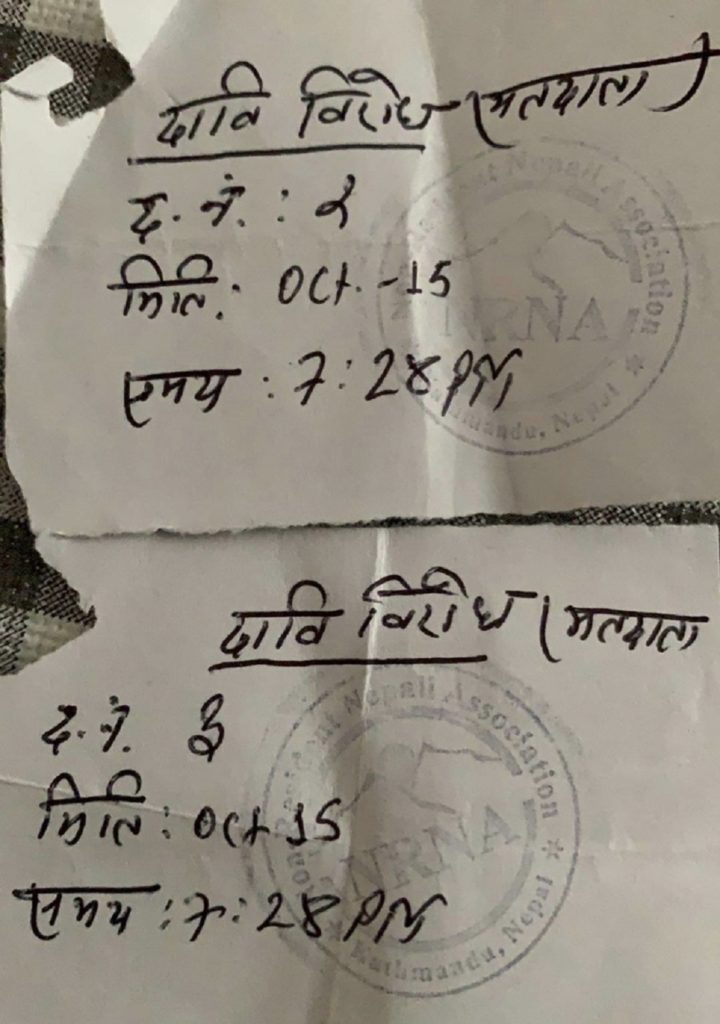 दावि विरोध (मतदाता)
द. नं. : २
मिति: Oct. -15
समय : 7:28 PM
Resident Nepali Association
NRNA
Kathmandu, Nepal
दावि विरोध (मतदाता
द. नं. ३
मिति: Oct 15
समय : 7:28 PM
Non-Resident Nepali Association
NRNA
Kathmandu, Nepal